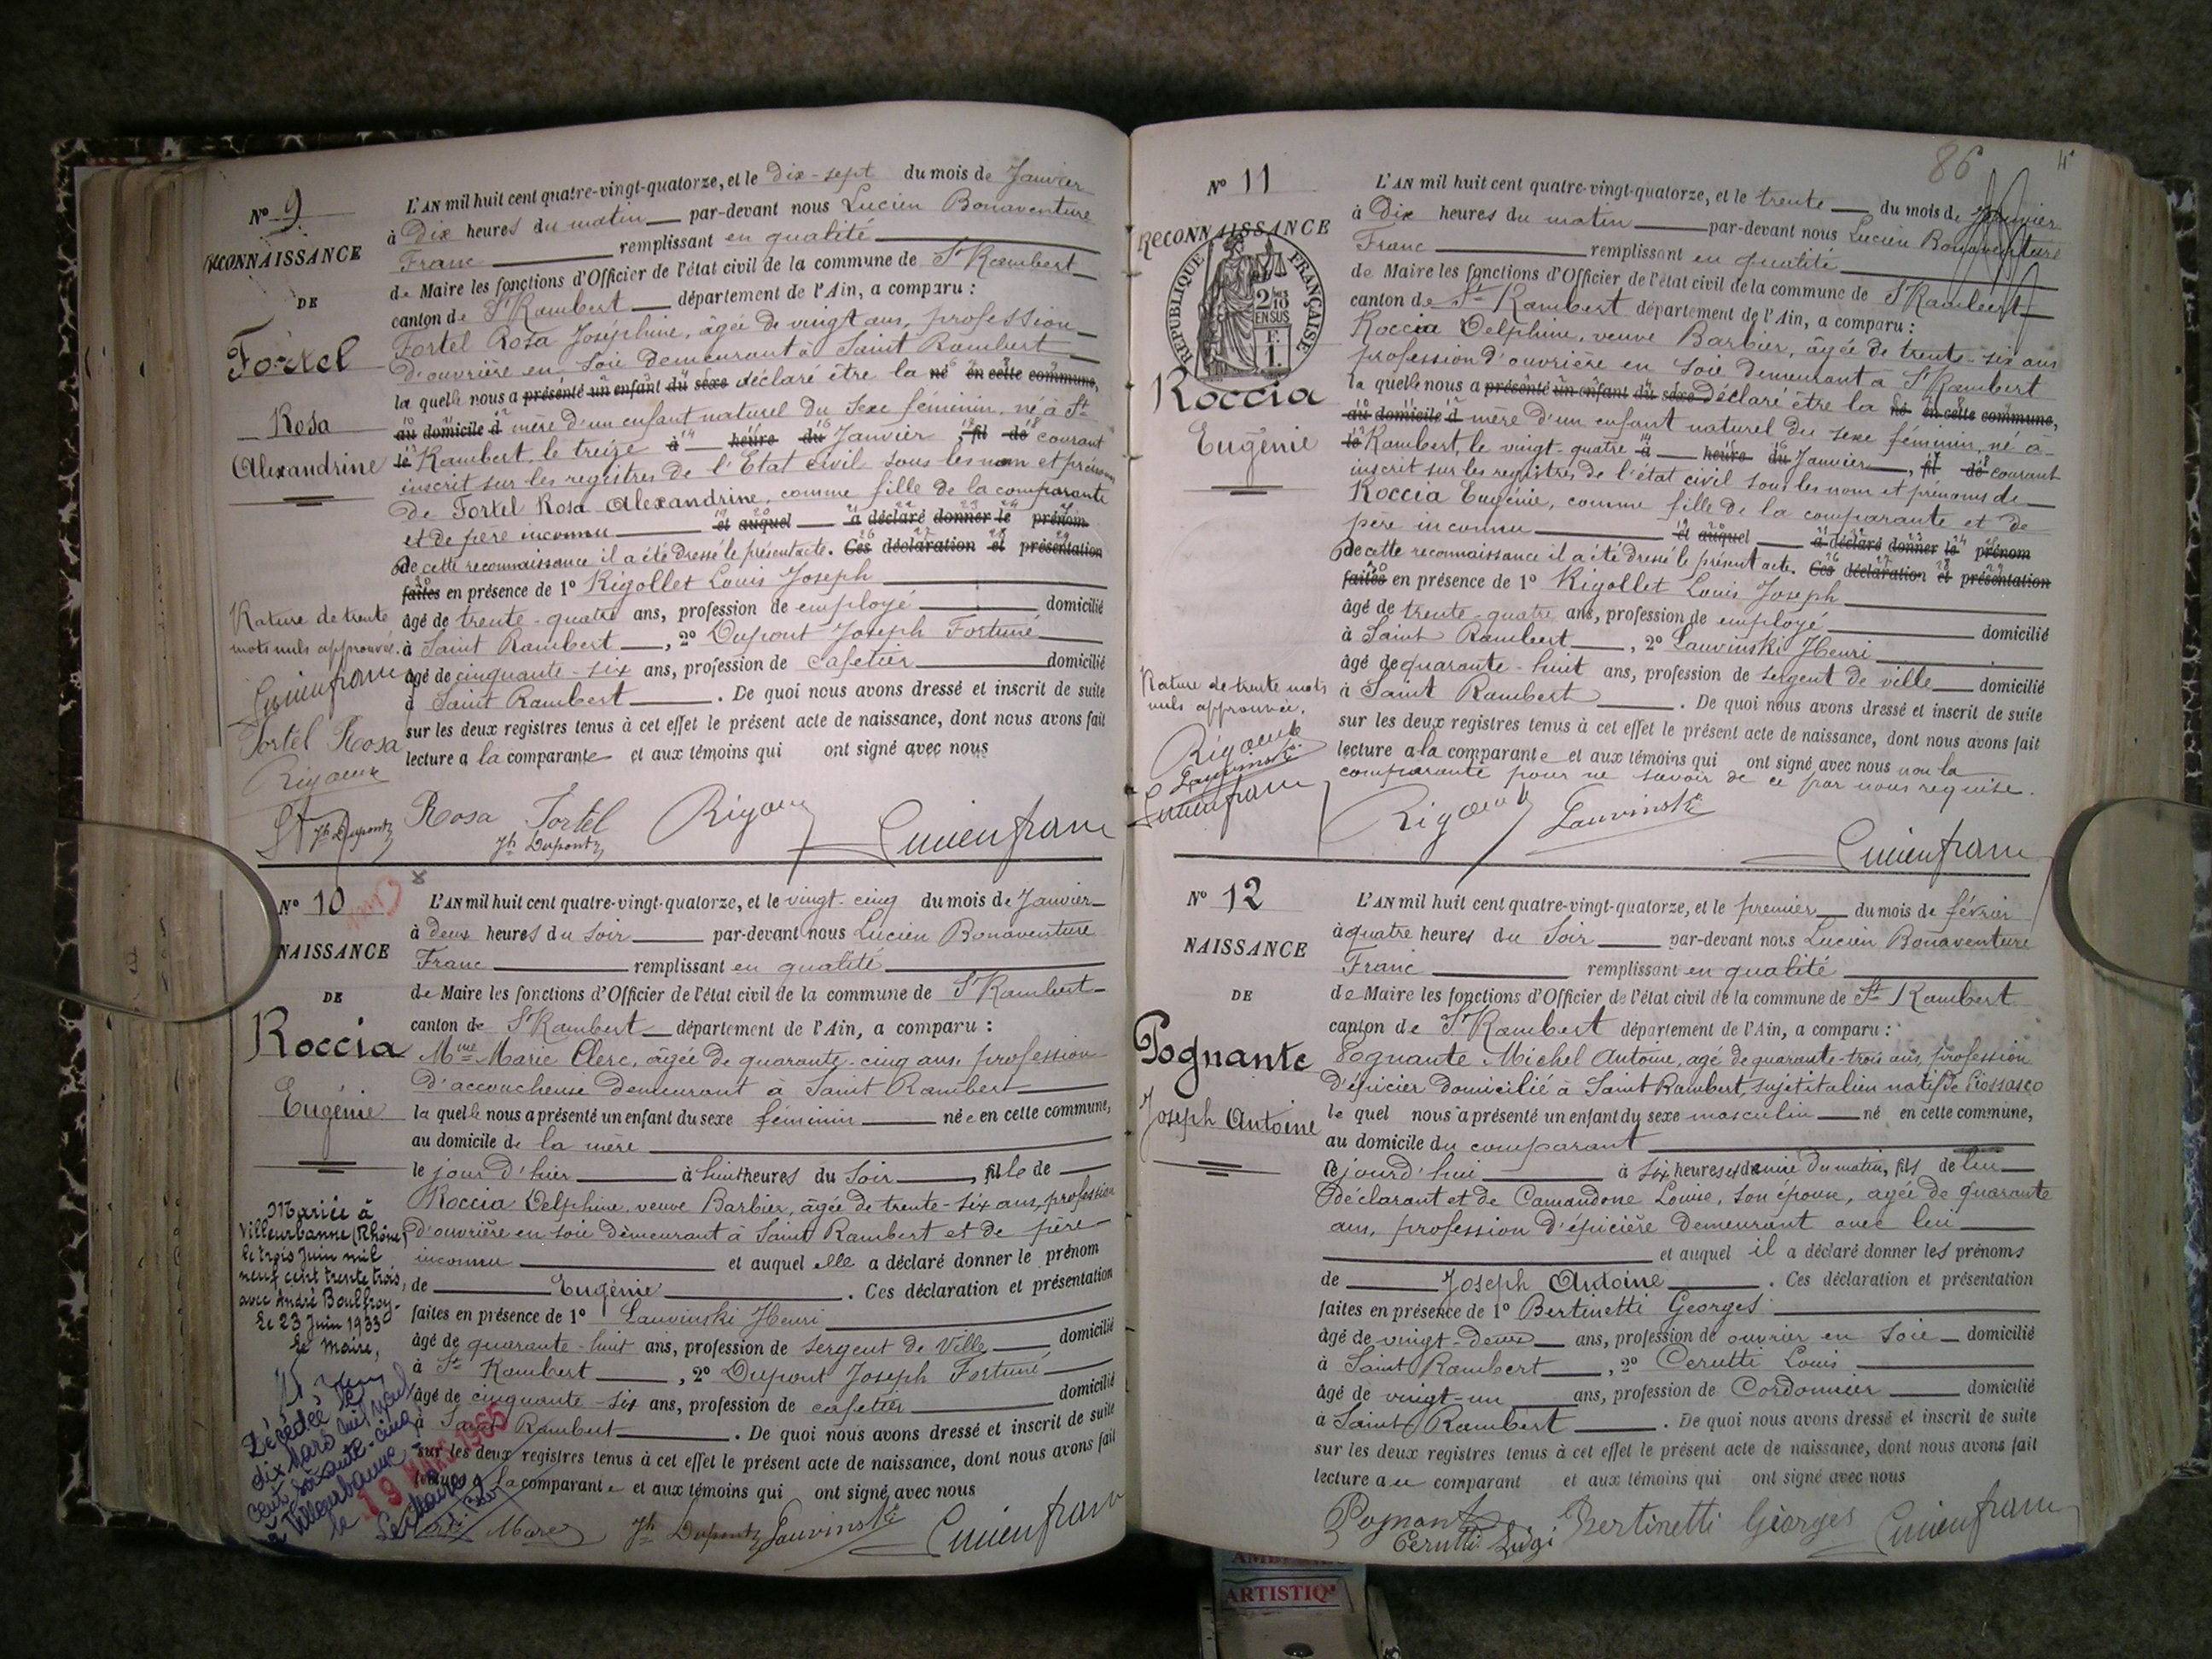 N° 9
RECONNAISSANCE
DE
Fortel
Rosa
Alexandrine
L'AN mil huit cent quatre-vingt-quatorze, et le dix-sept du mois de Janvier
à Dix heures du matin par-devant nous Lucien Bonaventure
Franc remplissant en qualité
de Maire les fonctions d'Officier de l'état civil de la commune de St Rambert
canton de St Rambert département de l'Ain, a comparu :
Fortel Rosa Joséphine, âgée de vingt ans, profession
d'ouvrière en soie demeurant à Saint Rambert
la quelle nous a présenté un enfant du sexe déclaré être la né en cette commune,
au domicile d mère d'un enfant naturel du sexe féminin, né à St
le Rambert, le treize à heure du Janvier, fil de courant
inscrit sur les registres de l'Etat civil sous les nom et prénoms
de Fortel Rosa Alexandrine, comme fille de la comparante
et de père inconnu et auquel a déclaré donner le prénom
De cette reconnaissance il a été dressé le présent acte. Ces déclaration et présentation
faites en présence de 1° Rigollet Louis Joseph
âgé de trente-quatre ans, profession de employé domicilié
à Saint Rambert, 2° Dupont Joseph Fortuné
âgé de cinquante-six ans, profession de cafetier domicilié
à Saint Rambert. De quoi nous avons dressé et inscrit de suite
sur les deux registres tenus à cet effet le présent acte de naissance, dont nous avons fait
lecture a la comparante et aux témoins qui ont signé avec nous
Rature de trente
mots nuls approuvée.
Lucien franc
Fortel Rosa
Jh Dupont
Rosa Fortel
Jh Dupont
Lucien franc
N° 10
NAISSANCE
DE
Roccia
Eugénie
L'AN mil huit cent quatre-vingt-quatorze, et le vingt-cinq du mois de Janvier
à deux heures du soir par-devant nous Lucien Bonaventure
Franc remplissant en qualité
de Maire les fonctions d'Officier de l'état civil de la commune de St Rambert
canton de St Rambert département de l'Ain, a comparu :
Mme Marie Clerc, âgée de quarante-cinq ans, profession
d'accoucheuse demeurant à Saint Rambert
la quelle nous a présenté un enfant du sexe féminin née en cette commune,
au domicile de la mère
le jour d'hier à huit heures du soir, fille de
Roccia Delphine, veuve Barbier, âgée de trente-six ans, profession
d'ouvrière en soie demeurant à Saint Rambert et de père
inconnu et auquel elle a déclaré donner le prénom
de Eugénie. Ces déclaration et présentation
faites en présence de 1° Lauvinski Henri
âgé de quarante-huit ans, profession de sergent de Ville domicilié
à St Rambert, 2° Dupont Joseph Fortuné
âgé de cinquante-six ans, profession de cafetier domicilié
à Saint Rambert. De quoi nous avons dressé et inscrit de suite
sur les deux registres tenus à cet effet le présent acte de naissance, dont nous avons fait
lecture a la comparante et aux témoins qui ont signé avec nous
Mariée à
Villeurbanne (Rhône)
le trois Juin mil
neuf cent trente trois,
avec André Boulfroy
Le 23 Juin 1933
Le Maire,
Décédée le
dix Mars mil neuf
cent soixante-cinq
à Villeurbanne
le 19 MARS 1965
Le Maire
Jh Dupont Lauvinski Lucien franc
86
N° 11
RECONNAISSANCE
RÉPUBLIQUE FRANÇAISE
2/10 EN SUS
F. 1.
Roccia
Eugénie
L'AN mil huit cent quatre-vingt-quatorze, et le trente du mois de Janvier
à Dix heures du matin par-devant nous Lucien Bonaventure
Franc remplissant en qualité
de Maire les fonctions d'Officier de l'état civil de la commune de St Rambert
canton de St Rambert département de l'Ain, a comparu :
Roccia Delphine, veuve Barbier, âgée de trente-six ans
profession d'ouvrière en soie demeurant à St Rambert
la quelle nous a présenté un enfant du sexe Déclaré être la né en cette commune,
au domicile d mère d'un enfant naturel du sexe féminin, né à
le Rambert, le vingt-quatre à heure du Janvier, fil de courant
inscrit sur les registres de l'état civil sous les nom et prénoms de
Roccia Eugénie, comme fille de la comparante et de
père inconnu et auquel a déclaré donner le prénom
De cette reconnaissance il a été dressé le présent acte. Ces déclaration et présentation
faites en présence de 1° Rigollet Louis Joseph
âgé de trente-quatre ans, profession de employé domicilié
à Saint Rambert, 2° Lauvinski Henri
âgé de quarante-huit ans, profession de sergent de ville domicilié
à Saint Rambert. De quoi nous avons dressé et inscrit de suite
sur les deux registres tenus à cet effet le présent acte de naissance, dont nous avons fait
lecture a la comparante et aux témoins qui ont signé avec nous non la
comparante pour ne savoir de ce par nous requise.
Rature de trente mots
nuls approuvée.
Lauvinski
Lucien franc
Lauvinski
Lucien franc
N° 12
NAISSANCE
DE
Pognante
Joseph Antoine
L'AN mil huit cent quatre-vingt-quatorze, et le premier du mois de février
à quatre heures du soir par-devant nous Lucien Bonaventure
Franc remplissant en qualité
de Maire les fonctions d'Officier de l'état civil de la commune de St Rambert
canton de St Rambert département de l'Ain, a comparu :
Pognante Michel Antoine, agé de quarante-trois ans, profession
d'épicier domicilié à Saint Rambert, sujet italien natif de Piossasco
le quel nous a présenté un enfant du sexe masculin né en cette commune,
au domicile du comparant
le jourd'hui à six heures et demie du matin, fils de lui
déclarant et de Camandone Louise, son épouse, agée de quarante
ans, profession d'épicière demeurant avec lui
et auquel il a déclaré donner les prénoms
de Joseph Antoine. Ces déclaration et présentation
faites en présence de 1° Bertinetti Georges
âgé de vingt-deux ans, profession de ouvrier en soie domicilié
à Saint Rambert, 2° Cerutti Louis
âgé de vingt-un ans, profession de Cordonnier domicilié
à Saint Rambert. De quoi nous avons dressé et inscrit de suite
sur les deux registres tenus à cet effet le présent acte de naissance, dont nous avons fait
lecture au comparant et aux témoins qui ont signé avec nous
Bertinetti Giorges Lucien franc
Cerutti Luigi
ARTISTIQ